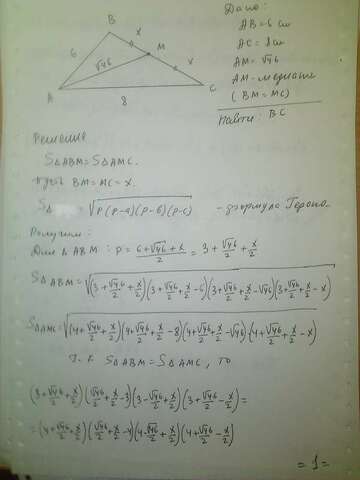 Дано:
AB = 6 см
AC = 8 см
AM = √46
AM - медиана
(BM = MC)
Найти: BC
B
x
6
√46
M
x
A
8
C
Решение
S△ABM = S△AMC.
Пусть BM = MC = x.
S△ = √(p(p-a)(p-b)(p-c)) - формула Герона.
Получим:
Для △ABM: p = (6+√46+x)/2 = 3 + √46/2 + x/2
S△ABM = √((3+√46/2+x/2)(3+√46/2+x/2-6)(3+√46/2+x/2-√46)(3+√46/2+x/2-x))
S△AMC = √((4+√46/2+x/2)(4+√46/2+x/2-8)(4+√46/2+x/2-√46)·(4+√46/2+x/2-x))
Т.к. S△ABM = S△AMC, то
(3+√46/2+x/2)(√46/2+x/2-3)(3-√46/2+x/2)(3+√46/2-x/2) =
= (4+√46/2+x/2)(√46/2+x/2-4)(4-√46/2+x/2)(4+√46/2-x/2)
= 1 =